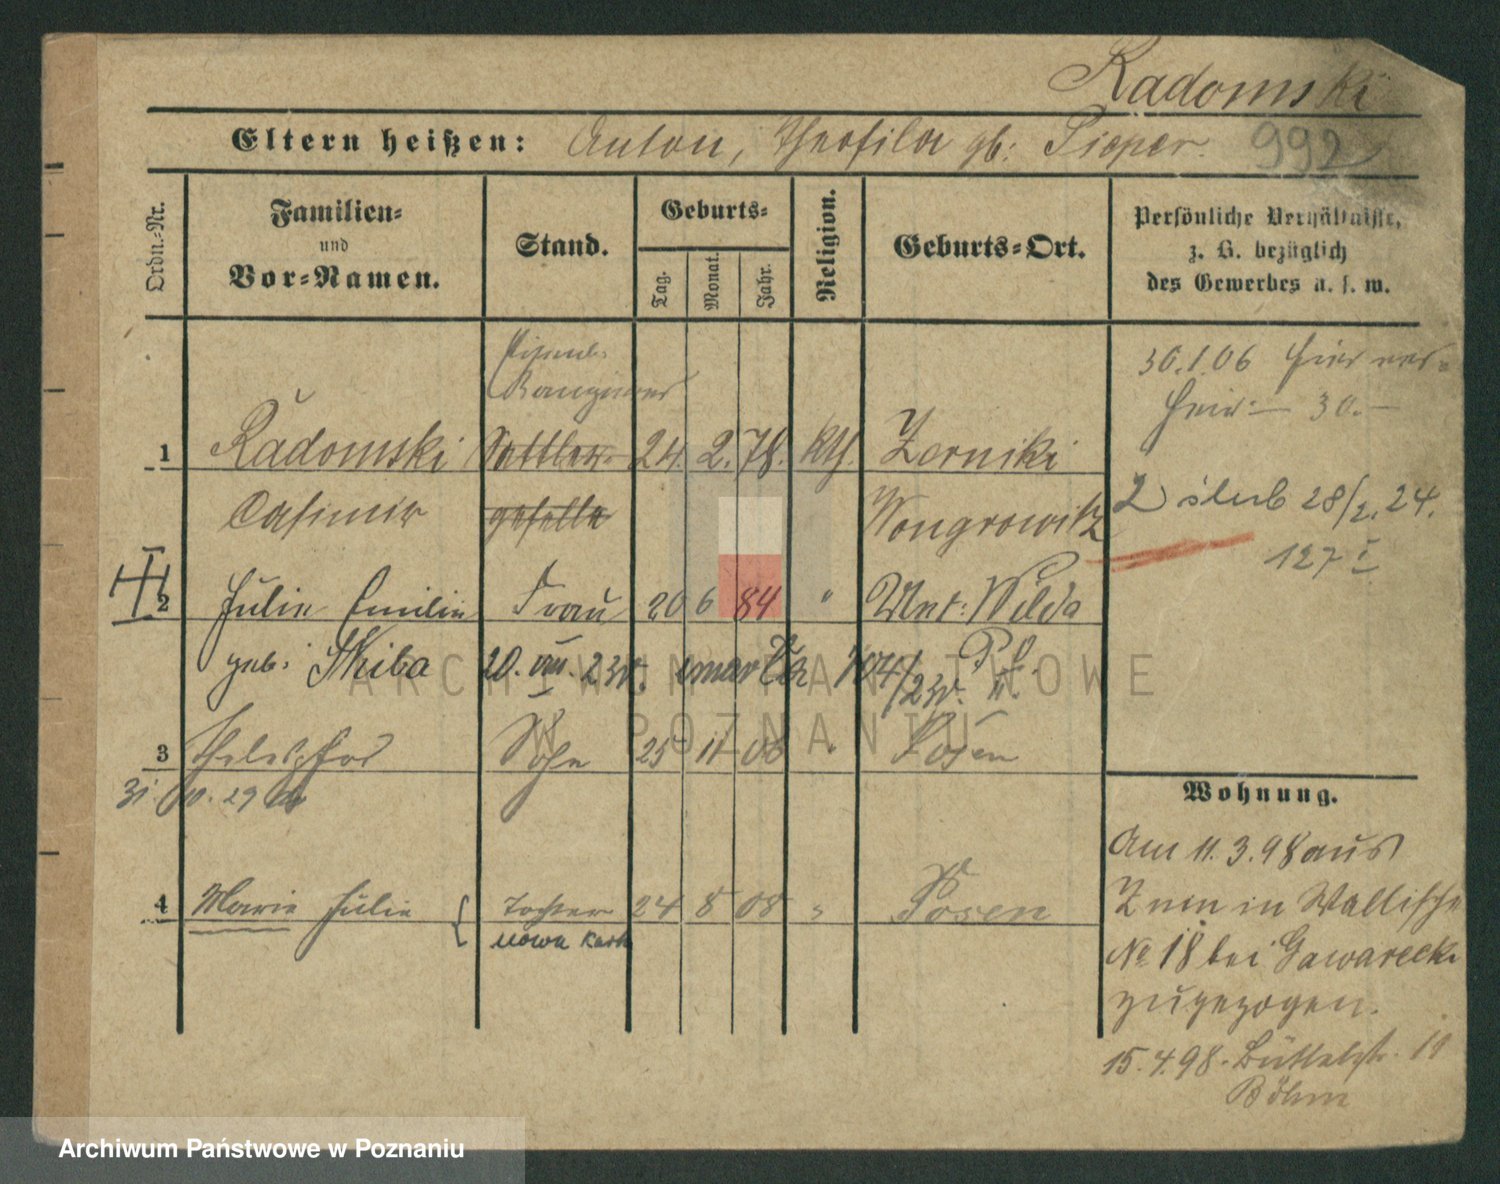 Radomski
Eltern heißen: Anton, Theofila gb: Pieper.
992
Ordn.-Nr.
Familien-
und
Vor-Namen.
Stand.
Geburts-
Tag.
Monat.
Jahr.
Religion.
Geburts-Ort.
Persönliche Verhältnisse,
z. B. bezüglich
des Gewerbes u. s. w.
Rangierer
30.1.06 hier ver-
heir. 30.
1 Radomski Sattler- 24. 2. 78. kth. Zerniki
Casimir geselle Wongrowitz
2 ślub 28/2. 24.
127 I
2 Julie Emilie Frau 20 6 84 " Unt: Wilda
geb: Skiba 20. VIII. 23r. zmarła 704/23r. P. II.
3 Telesphor Sohn 25 11 06 " Posen
31 29
4 Marie Julie Tochter 24 8 08 " Posen
nowa karta
Wohnung.
Am 11. 3. 98 aus
Znin in Wallische
No 18 bei Gawarecki
zugezogen.
15. 4. 98. Büttelstr. 19
Böhm
ARCHIWUM PAŃSTWOWE
W POZNANIU
Archiwum Państwowe w Poznaniu